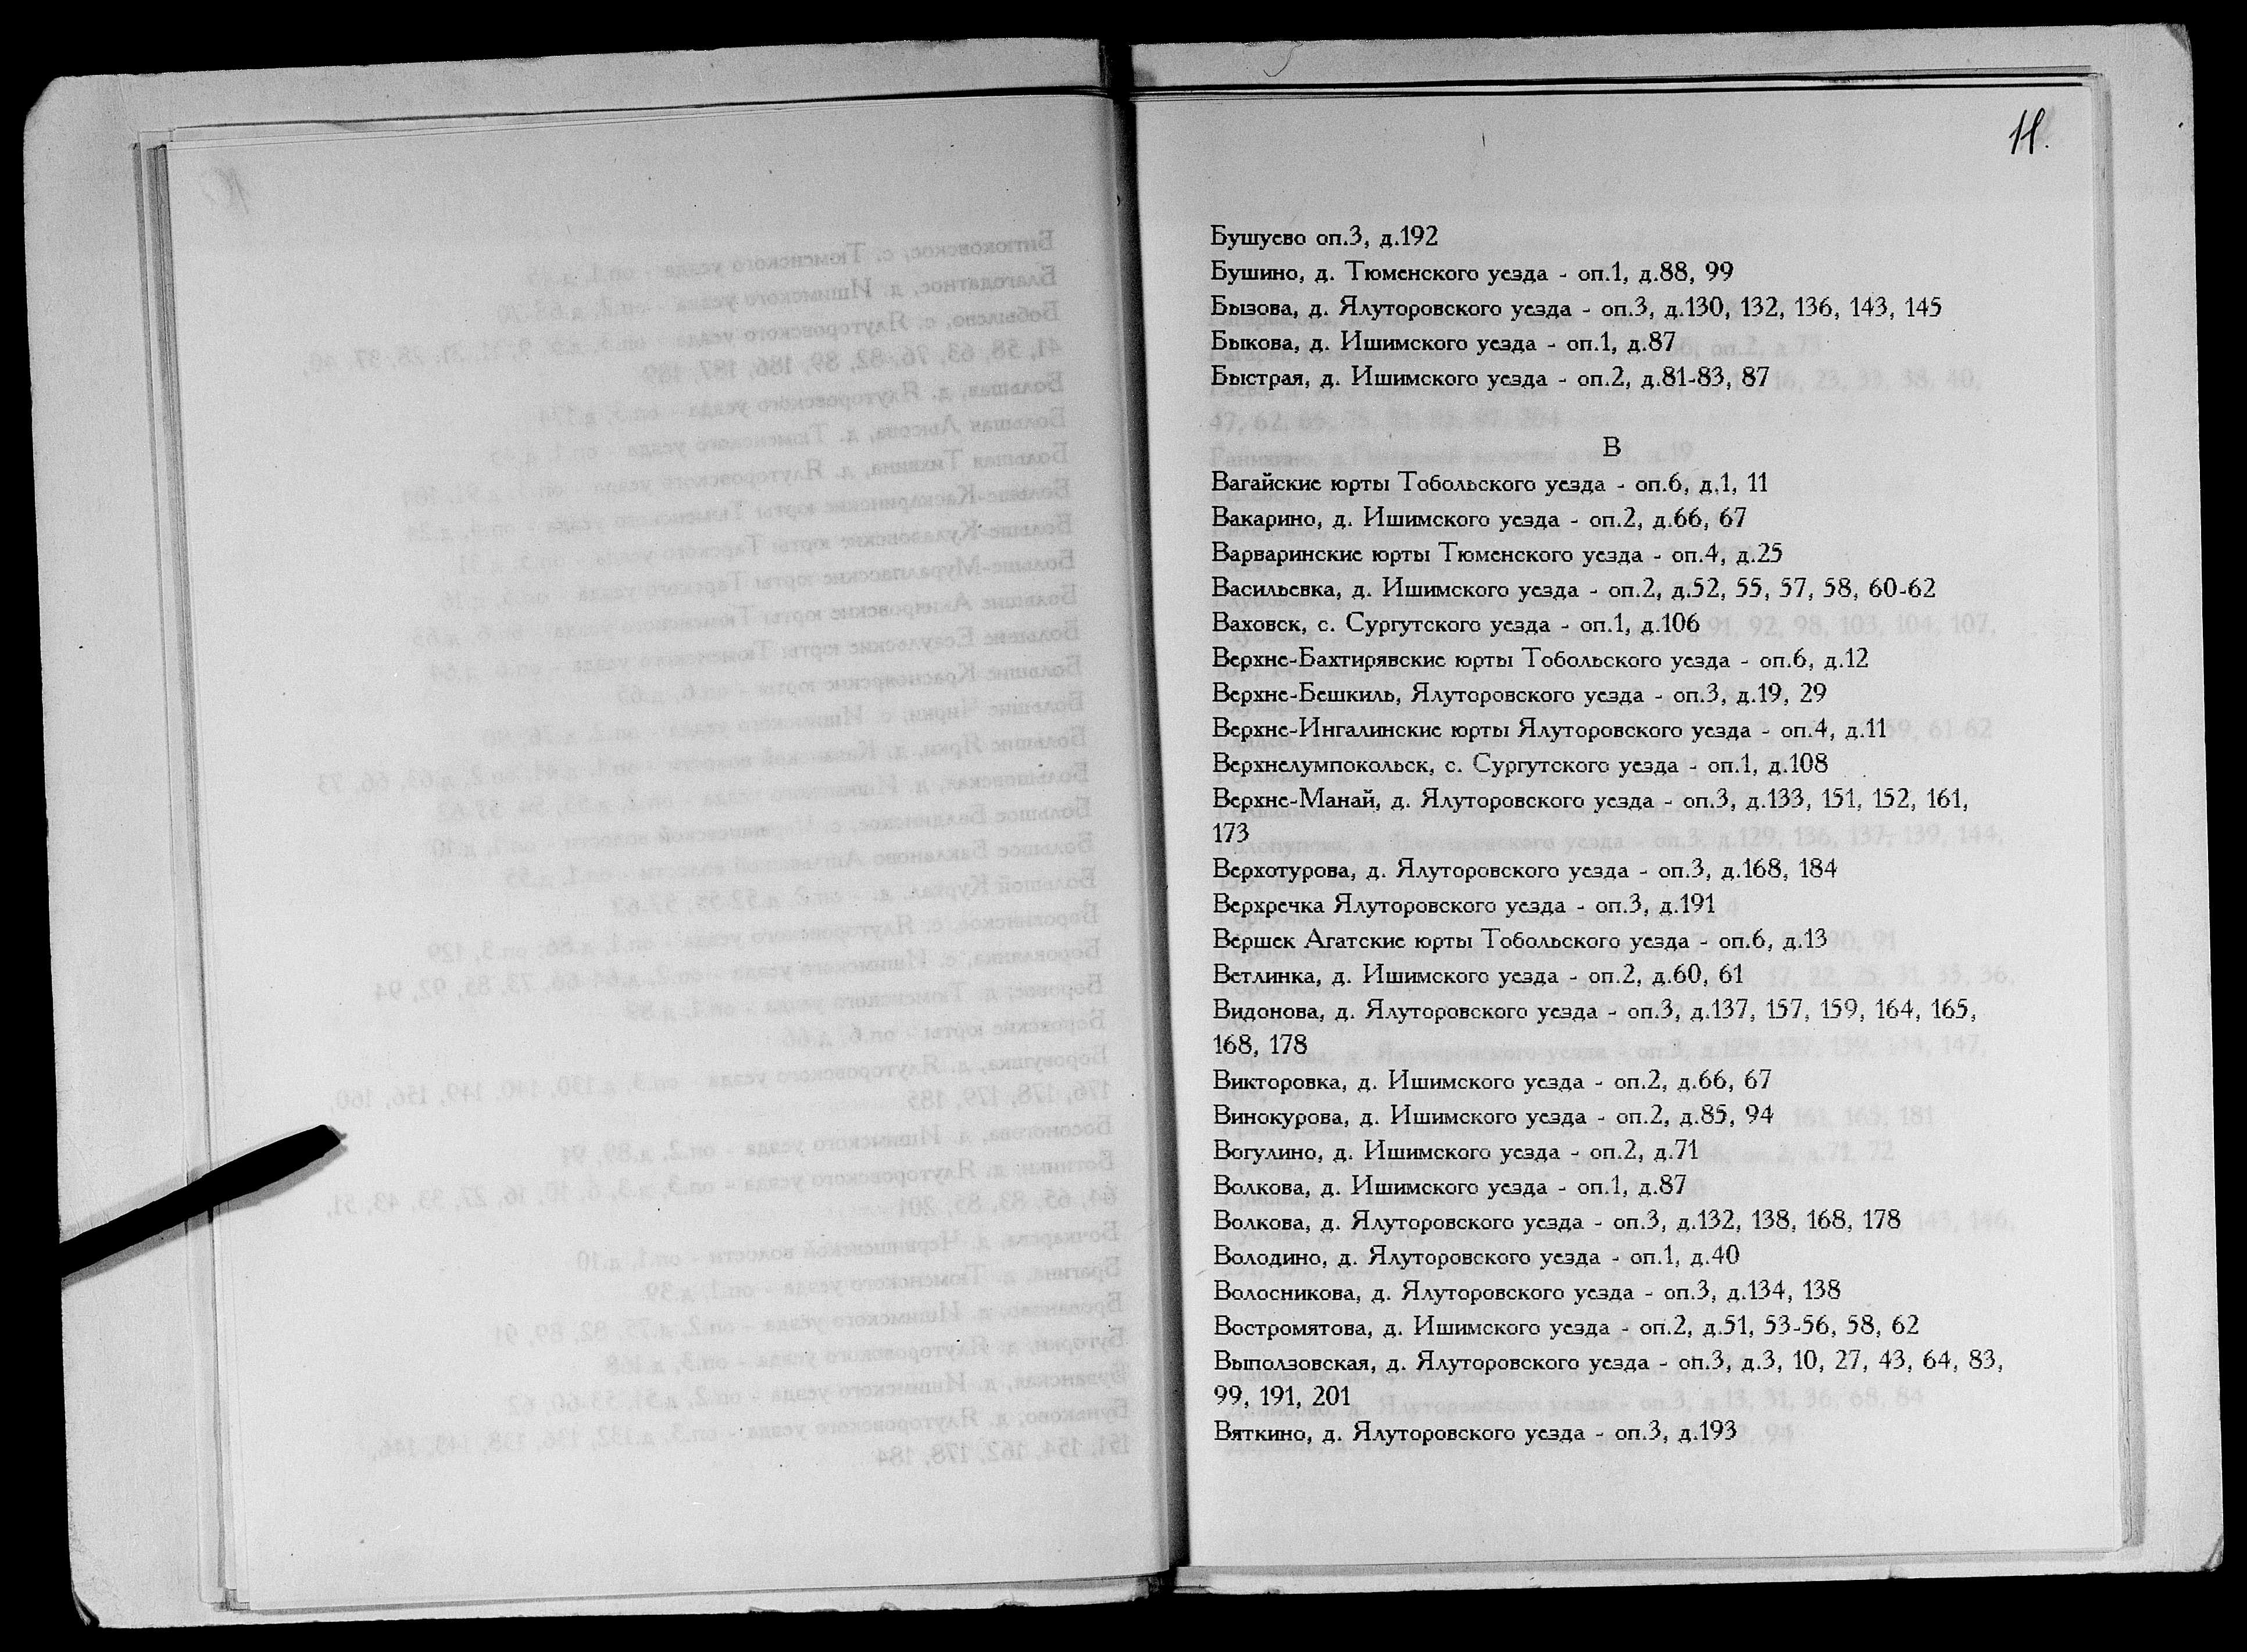 11.
Бушуево оп.3, д.192
Бушино, д. Тюменского уезда - оп.1, д.88, 99
Бызова, д. Ялуторовского уезда - оп.3, д.130, 132, 136, 143, 145
Быкова, д. Ишимского уезда - оп.1, д.87
Быстрая, д. Ишимского уезда - оп.2, д.81-83, 87
В
Вагайские юрты Тобольского уезда - оп.6, д.1, 11
Вакарино, д. Ишимского уезда - оп.2, д.66, 67
Варваринские юрты Тюменского уезда - оп.4, д.25
Васильевка, д. Ишимского уезда - оп.2, д.52, 55, 57, 58, 60-62
Ваховск, с. Сургутского уезда - оп.1, д.106
Верхне-Бахтирявские юрты Тобольского уезда - оп.6, д.12
Верхне-Бешкиль, Ялуторовского уезда - оп.3, д.19, 29
Верхне-Ингалинские юрты Ялуторовского уезда - оп.4, д.11
Верхнелумпокольск, с. Сургутского уезда - оп.1, д.108
Верхне-Манай, д. Ялуторовского уезда - оп.3, д.133, 151, 152, 161,
173
Верхотурова, д. Ялуторовского уезда - оп.3, д.168, 184
Верхречка Ялуторовского уезда - оп.3, д.191
Вершек Агатские юрты Тобольского уезда - оп.6, д.13
Ветлинка, д. Ишимского уезда - оп.2, д.60, 61
Видонова, д. Ялуторовского уезда - оп.3, д.137, 157, 159, 164, 165,
168, 178
Викторовка, д. Ишимского уезда - оп.2, д.66, 67
Винокурова, д. Ишимского уезда - оп.2, д.85, 94
Вогулино, д. Ишимского уезда - оп.2, д.71
Волкова, д. Ишимского уезда - оп.1, д.87
Волкова, д. Ялуторовского уезда - оп.3, д.132, 138, 168, 178
Володино, д. Ялуторовского уезда - оп.1, д.40
Волосникова, д. Ялуторовского уезда - оп.3, д.134, 138
Востромятова, д. Ишимского уезда - оп.2, д.51, 53-56, 58, 62
Выползовская, д. Ялуторовского уезда - оп.3, д.3, 10, 27, 43, 64, 83,
99, 191, 201
Вяткино, д. Ялуторовского уезда - оп.3, д.193